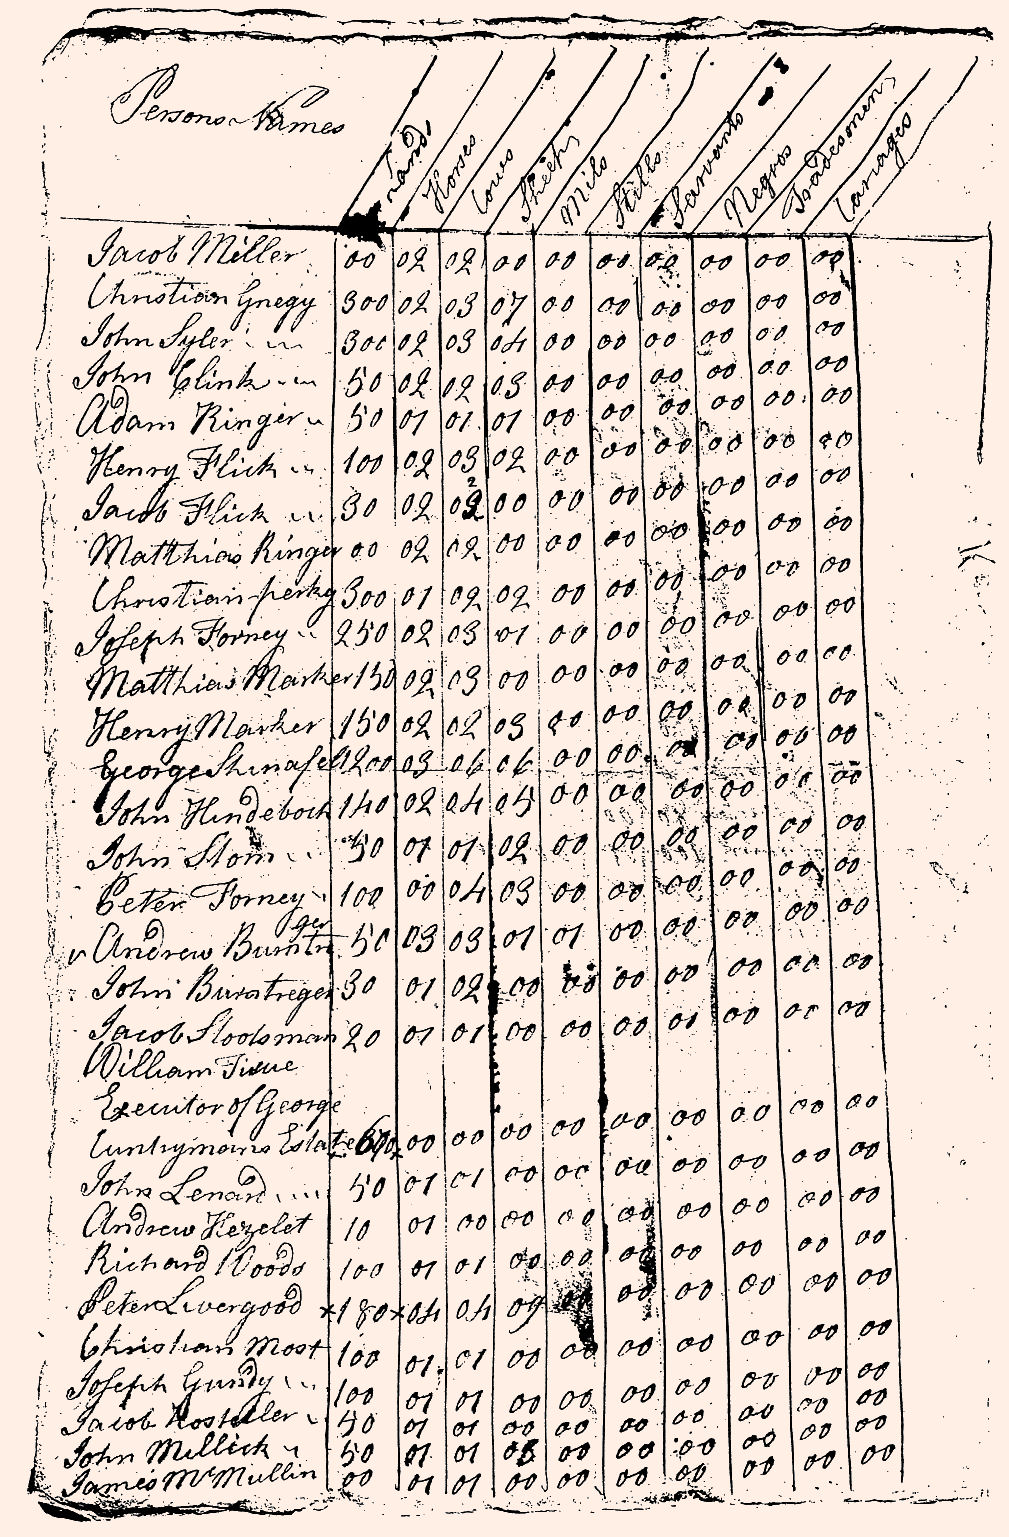 Persons Names Land Horses Cows Sheep Mils Stills Servants Negros Tradesmen Cariages
Jacob Miller 00 02 02 00 00 00 00 00 00 00
Christian Gnegy 300 02 03 07 00 00 00 00 00 00
John Syler 300 02 03 04 00 00 00 00 00 00
John Clink 50 02 02 03 00 00 00 00 00 00
Adam Ringer 50 01 01 01 00 00 00 00 00 00
Henry Flick 100 02 03 02 00 00 00 00 00 00
Jacob Flick 30 02 02 00 00 00 00 00 00 00
Matthias Ringer 00 02 02 00 00 00 00 00 00 00
Christian perky 300 01 02 02 00 00 00 00 00 00
Joseph Forney 250 02 03 01 00 00 00 00 00 00
Matthias Marker 150 02 03 00 00 00 00 00 00 00
Henry Marker 150 02 02 03 00 00 00 00 00 00
George Shinafelt 200 03 06 06 00 00 00 00 00 00
John Hindeboch 140 02 04 05 00 00 00 00 00 00
John Stom 50 01 01 02 00 00 00 00 00 00
Peter Forney 100 00 04 03 00 00 00 00 00 00
ger
Andrew 50 03 03 01 01 00 00 00 00 00
John Burstreger 30 01 02 00 00 00 00 00 00 00
Jacob Slodsman 20 01 01 00 00 00 01 00 00 00
William Tissue
Executor of George
Cuntrymans Estate 00 00 00 00 00 00 00 00 00
John Lenard 50 01 01 00 00 00 00 00 00 00
Andrew Hezelet 10 01 00 00 00 00 00 00 00 00
Richard Woods 100 01 01 00 00 00 00 00 00 00
Peter Livergood x180x 04 04 09 00 00 00 00 00 00
Christian Most 100 01 01 00 00 00 00 00 00 00
Joseph Gundy 100 01 01 00 00 00 00 00 00 00
Jacob Hosteller 50 01 01 00 00 00 00 00 00 00
John Millick 50 01 01 03 00 00 00 00 00 00
James McMullin 00 01 01 00 00 00 00 00 00 00